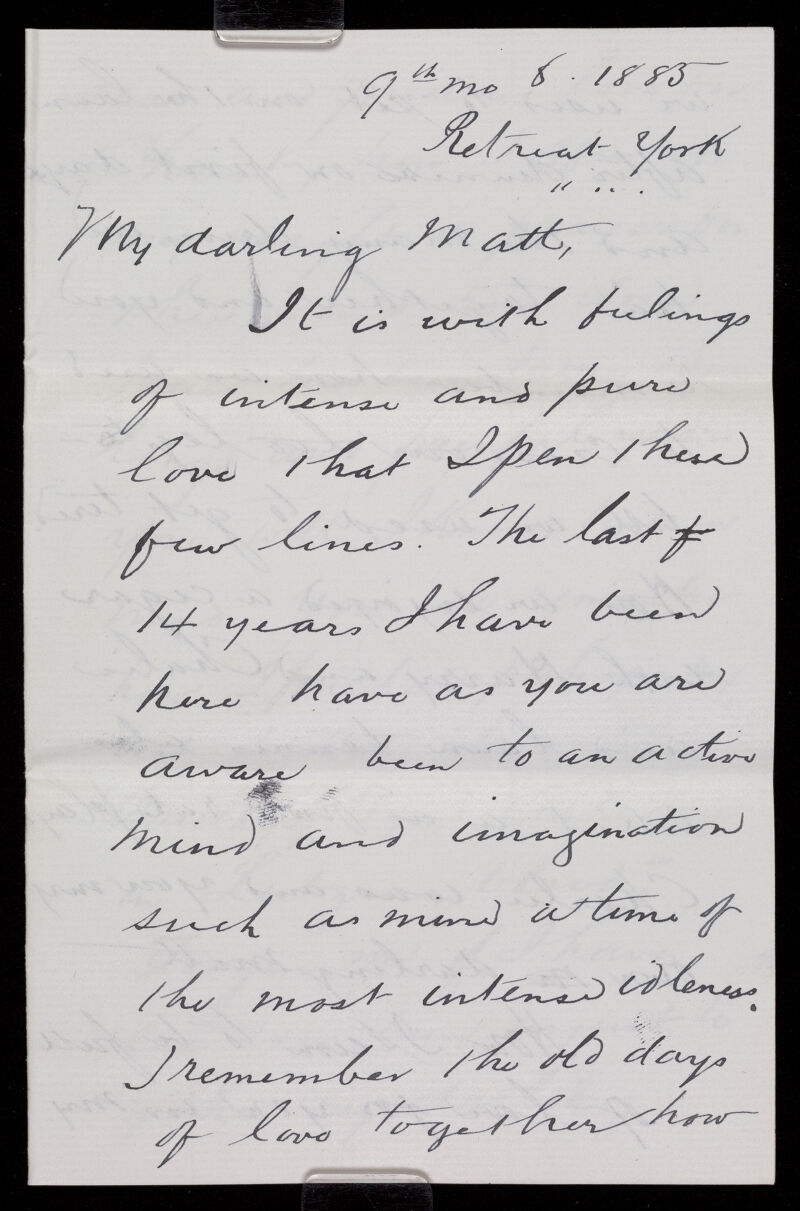 9th mo 8. 1885
Retreat York
" " .
My darling Matt,
It is with feelings
of intense and pure
love that I pen these
few lines. The last
14 years I have been
here have as you are
aware been to an active
mind and imagination
such as mine a time of
the most intense idleness.
I remember the old days
of love together how